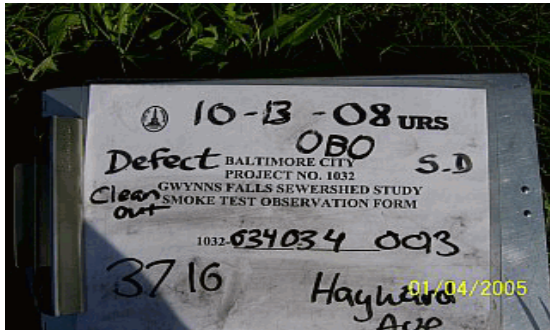 10-13-08 URS
OBO
Defect BALTIMORE CITY S.D
PROJECT NO. 1032
Clean out GWYNNS FALLS SEWERSHED STUDY
SMOKE TEST OBSERVATION FORM
1032-034034 0093
3716
Hayward
Ave
01/04/2005